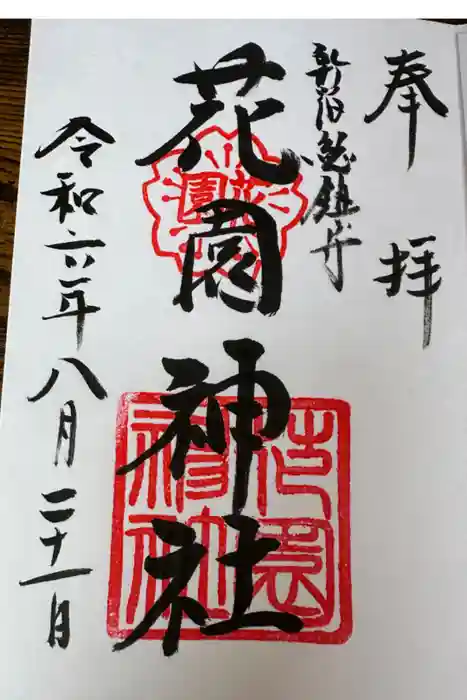 奉拝
新宿総鎮守
花園神社
花園
花園神社
令和六年八月二十一日